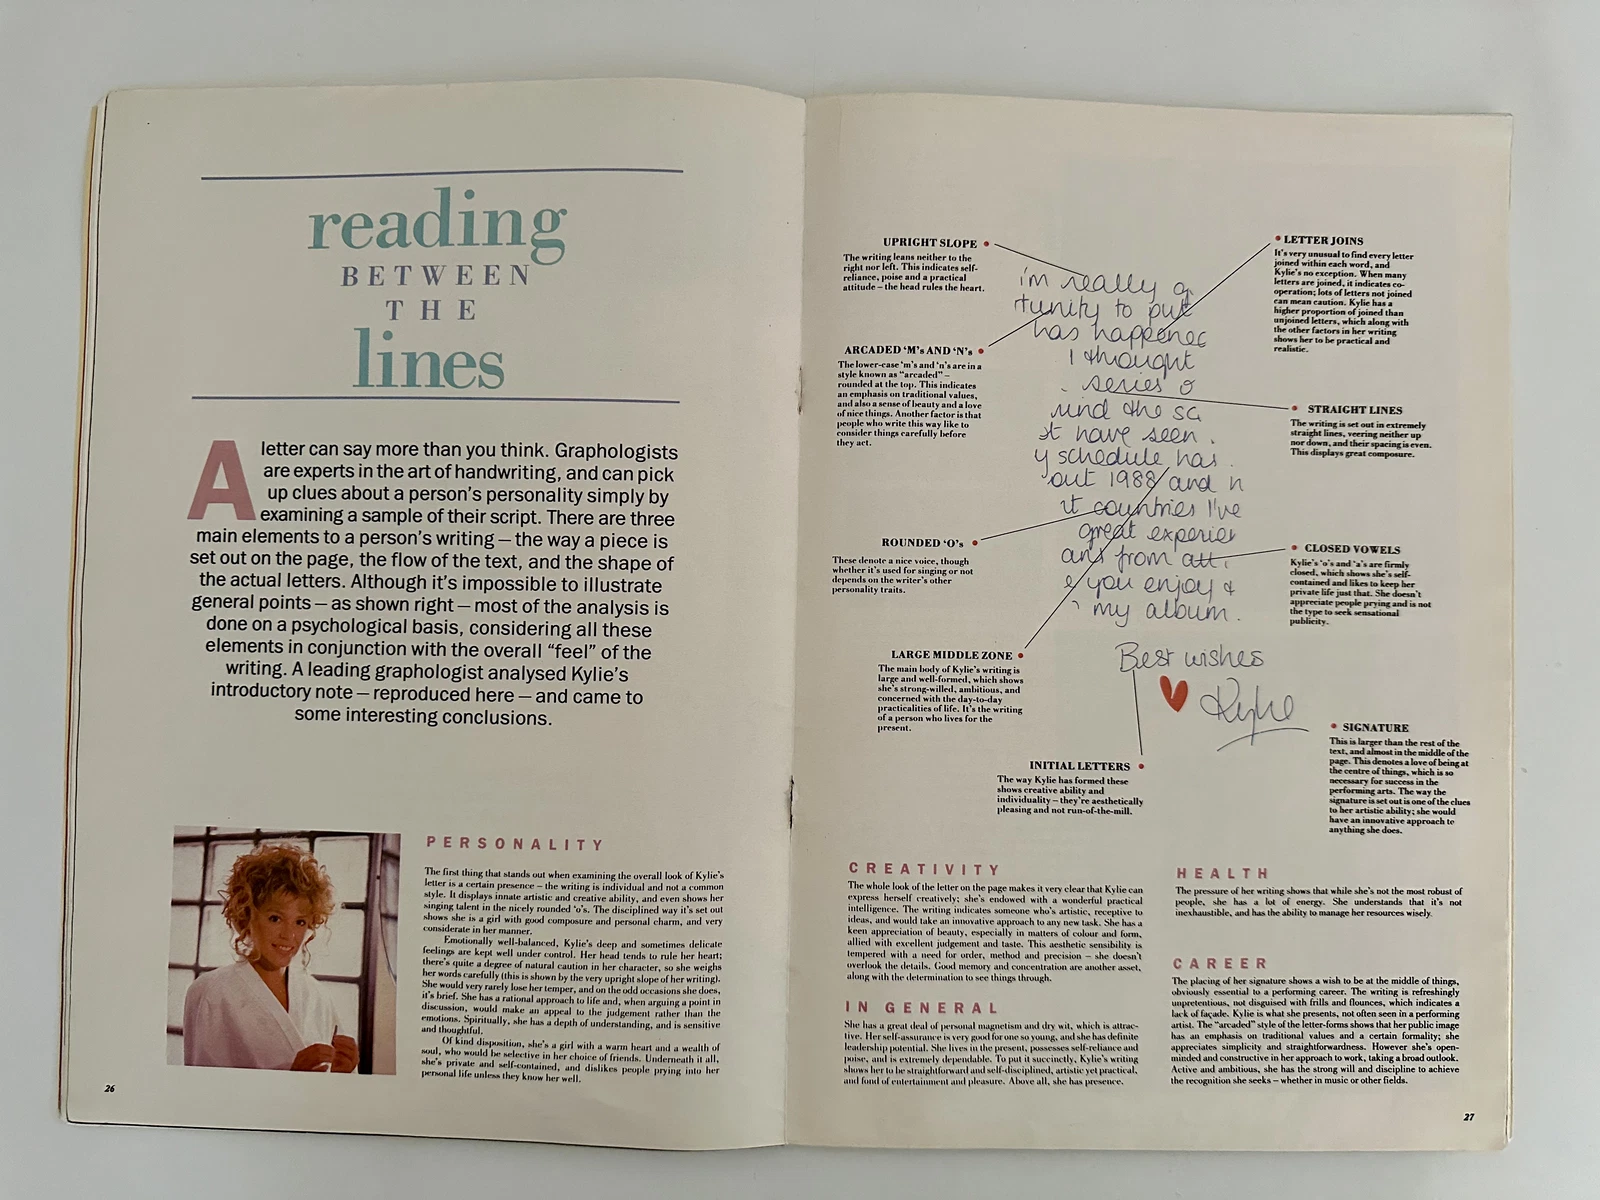 reading
BETWEEN
THE
lines
A letter can say more than you think. Graphologists
are experts in the art of handwriting, and can pick
up clues about a person's personality simply by
examining a sample of their script. There are three
main elements to a person's writing – the way a piece is
set out on the page, the flow of the text, and the shape of
the actual letters. Although it's impossible to illustrate
general points – as shown right – most of the analysis is
done on a psychological basis, considering all these
elements in conjunction with the overall "feel" of the
writing. A leading graphologist analysed Kylie's
introductory note – reproduced here – and came to
some interesting conclusions.
PERSONALITY
The first thing that stands out when examining the overall look of Kylie's
letter is a certain presence – the writing is individual and not a common
style. It displays innate artistic and creative ability, and even shows her
singing talent in the nicely rounded 'o's. The disciplined way it's set out
shows she is a girl with good composure and personal charm, and very
considerate in her manner.
Emotionally well-balanced, Kylie's deep and sometimes delicate
feelings are kept well under control. Her head tends to rule her heart;
there's quite a degree of natural caution in her character, so she weighs
her words carefully (this is shown by the very upright slope of her writing).
She would very rarely lose her temper, and on the odd occasions she does,
it's brief. She has a rational approach to life and, when arguing a point in
discussion, would make an appeal to the judgement rather than the
emotions. Spiritually, she has a depth of understanding, and is sensitive
and thoughtful.
Of kind disposition, she's a girl with a warm heart and a wealth of
soul, who would be selective in her choice of friends. Underneath it all,
she's private and self-contained, and dislikes people prying into her
personal life unless they know her well.
26
UPRIGHT SLOPE
The writing leans neither to the
right nor left. This indicates self-
reliance, poise and a practical
attitude – the head rules the heart.
ARCADED 'M's AND 'N's
The lower-case 'm's and 'n's are in a
style known as "arcaded" –
rounded at the top. This indicates
an emphasis on traditional values,
and also a sense of beauty and a love
of nice things. Another factor is that
people who write this way like to
consider things carefully before
they act.
ROUNDED 'O's
These denote a nice voice, though
whether it's used for singing or not
depends on the writer's other
personality traits.
LARGE MIDDLE ZONE
The main body of Kylie's writing is
large and well-formed, which shows
she's strong-willed, ambitious, and
concerned with the day-to-day
practicalities of life. It's the writing
of a person who lives for the
present.
INITIAL LETTERS
The way Kylie has formed these
shows creative ability and
individuality – they're aesthetically
pleasing and not run-of-the-mill.
i'm really g
tunity to put
has happened
I thought
series o
und the sc
st have seen
y schedule has
out 1988 and n
it countries I've
great experien
ans from all
e you enjoy
my album.
Best wishes
Kylie
LETTER JOINS
It's very unusual to find every letter
joined within each word, and
Kylie's no exception. When many
letters are joined, it indicates co-
operation; lots of letters not joined
can mean caution. Kylie has a
higher proportion of joined than
unjoined letters, which along with
the other factors in her writing
shows her to be practical and
realistic.
STRAIGHT LINES
The writing is set out in extremely
straight lines, veering neither up
nor down, and their spacing is even.
This displays great composure.
CLOSED VOWELS
Kylie's 'o's and 'a's are firmly
closed, which shows she's self-
contained and likes to keep her
private life just that. She doesn't
appreciate people prying and is not
the type to seek sensational
publicity.
SIGNATURE
This is larger than the rest of the
text, and almost in the middle of the
page. This denotes a love of being at
the centre of things, which is so
necessary for success in the
performing arts. The way the
signature is set out is one of the clues
to her artistic ability; she would
have an innovative approach to
anything she does.
CREATIVITY
The whole look of the letter on the page makes it very clear that Kylie can
express herself creatively; she's endowed with a wonderful practical
intelligence. The writing indicates someone who's artistic, receptive to
ideas, and would take an innovative approach to any new task. She has a
keen appreciation of beauty, especially in matters of colour and form,
allied with excellent judgement and taste. This aesthetic sensibility is
tempered with a need for order, method and precision – she doesn't
overlook the details. Good memory and concentration are another asset,
along with the determination to see things through.
IN GENERAL
She has a great deal of personal magnetism and dry wit, which is attrac-
tive. Her self-assurance is very good for one so young, and she has definite
leadership potential. She lives in the present, possesses self-reliance and
poise, and is extremely dependable. To put it succinctly, Kylie's writing
shows her to be straightforward and self-disciplined, artistic yet practical,
and fond of entertainment and pleasure. Above all, she has presence.
HEALTH
The pressure of her writing shows that while she's not the most robust of
people, she has a lot of energy. She understands that it's not
inexhaustible, and has the ability to manage her resources wisely.
CAREER
The placing of her signature shows a wish to be at the middle of things,
obviously essential to a performing career. The writing is refreshingly
unpretentious, not disguised with frills and flounces, which indicates a
lack of façade. Kylie is what she presents, not often seen in a performing
artist. The "arcaded" style of the letter-forms shows that her public image
has an emphasis on traditional values and a certain formality; she
appreciates simplicity and straightforwardness. However she's open-
minded and constructive in her approach to work, taking a broad outlook.
Active and ambitious, she has the strong will and discipline to achieve
the recognition she seeks – whether in music or other fields.
27